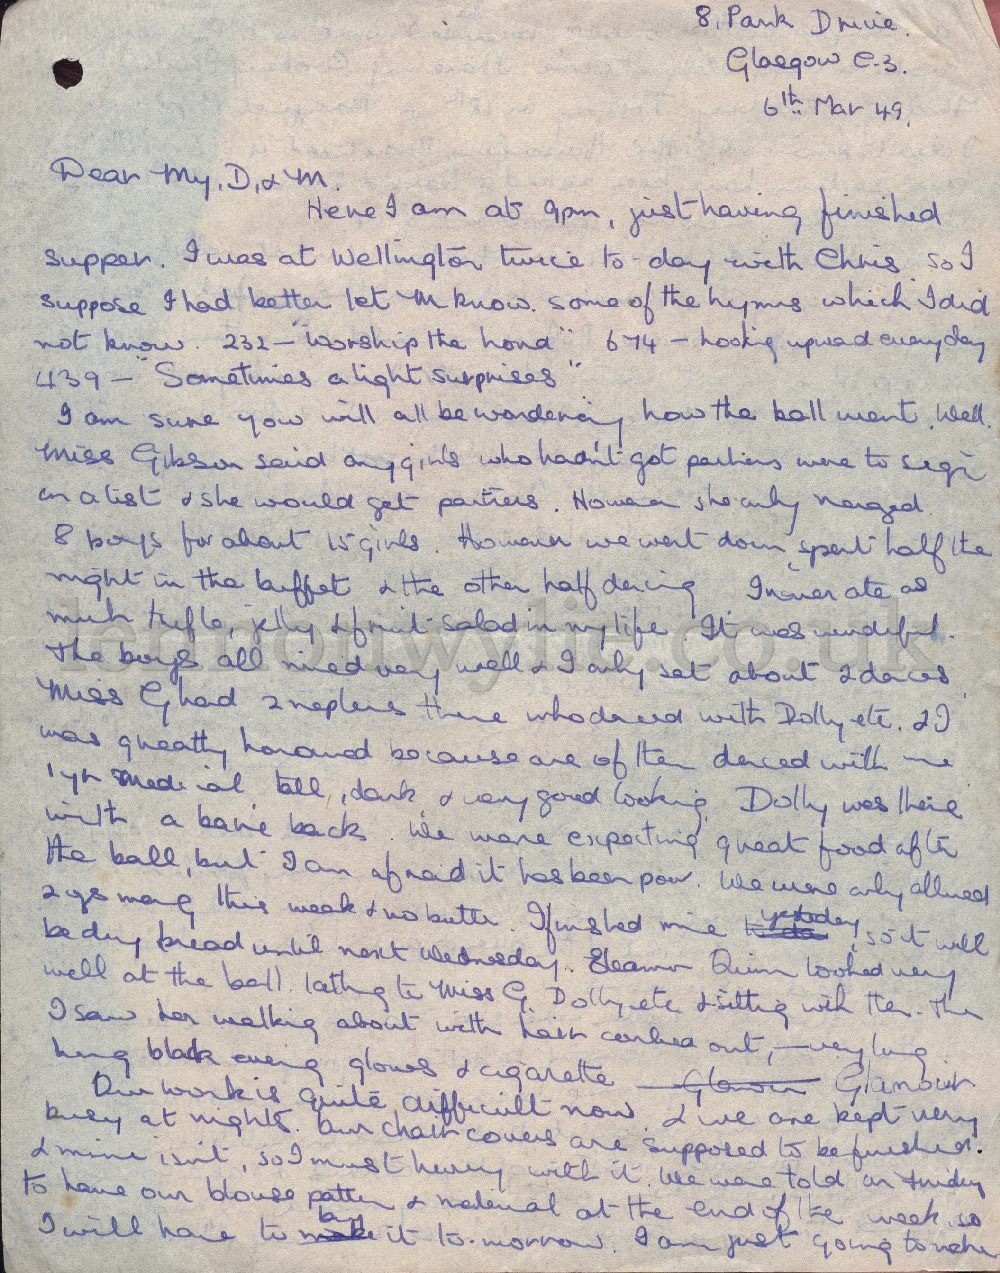 8, Park Drive.
Glasgow C.3.
6th Mar 49.
Dear My, D, & M.
Here I am at 9pm, just having finished
supper. I was at Wellington twice to-day with Chris. so I
suppose I had better let M know some of the hymns which I did
not know. 232 – "Worship the Lord" 674 – Looking upward every day
439 – "Sometimes a light surprises"
I am sure you will all be wondering how the ball went. Well.
Miss Gibson said any girls who hadn't got partners were to sign
on a list & she would get partners. However she only manged
8 boys for about 15 girls. However we went down, spent half the
night in the buffet & the other half dancing I never ate as
much trifle, jelly & fruit salad in my life It was wonderful.
The boys all mixed very well & I only sat about 2 dances.
Miss G had 2 nephews there who danced with Dolly etc. & I
was greatly honoured because one of them danced with me
1 yr Medical tall, dark & very good looking. Dolly was there
with a bare back. We were expecting great food after
the ball, but I am afraid it has been poor. We were only allowed
2 ozs marg this week & no butter. I finished mine yesterday, so it will
be dry bread until next Wednesday. Eleanor Quinn looked very
well at the ball. talking to Miss G. Dolly etc & sitting with them. Then
I saw her walking about with hair combed out, – very long
long black evening gloves & cigarette Glamour
Our work is quite difficult now & we are kept very
busy at nights. Our chair covers are supposed to be finished.
& mine isn't, so I must hurry with it. We were told on Friday
to have our blouse pattern & material at the end of the week so
I will have to buy it to-morrow. I am just going to make
lennonwylie.co.uk